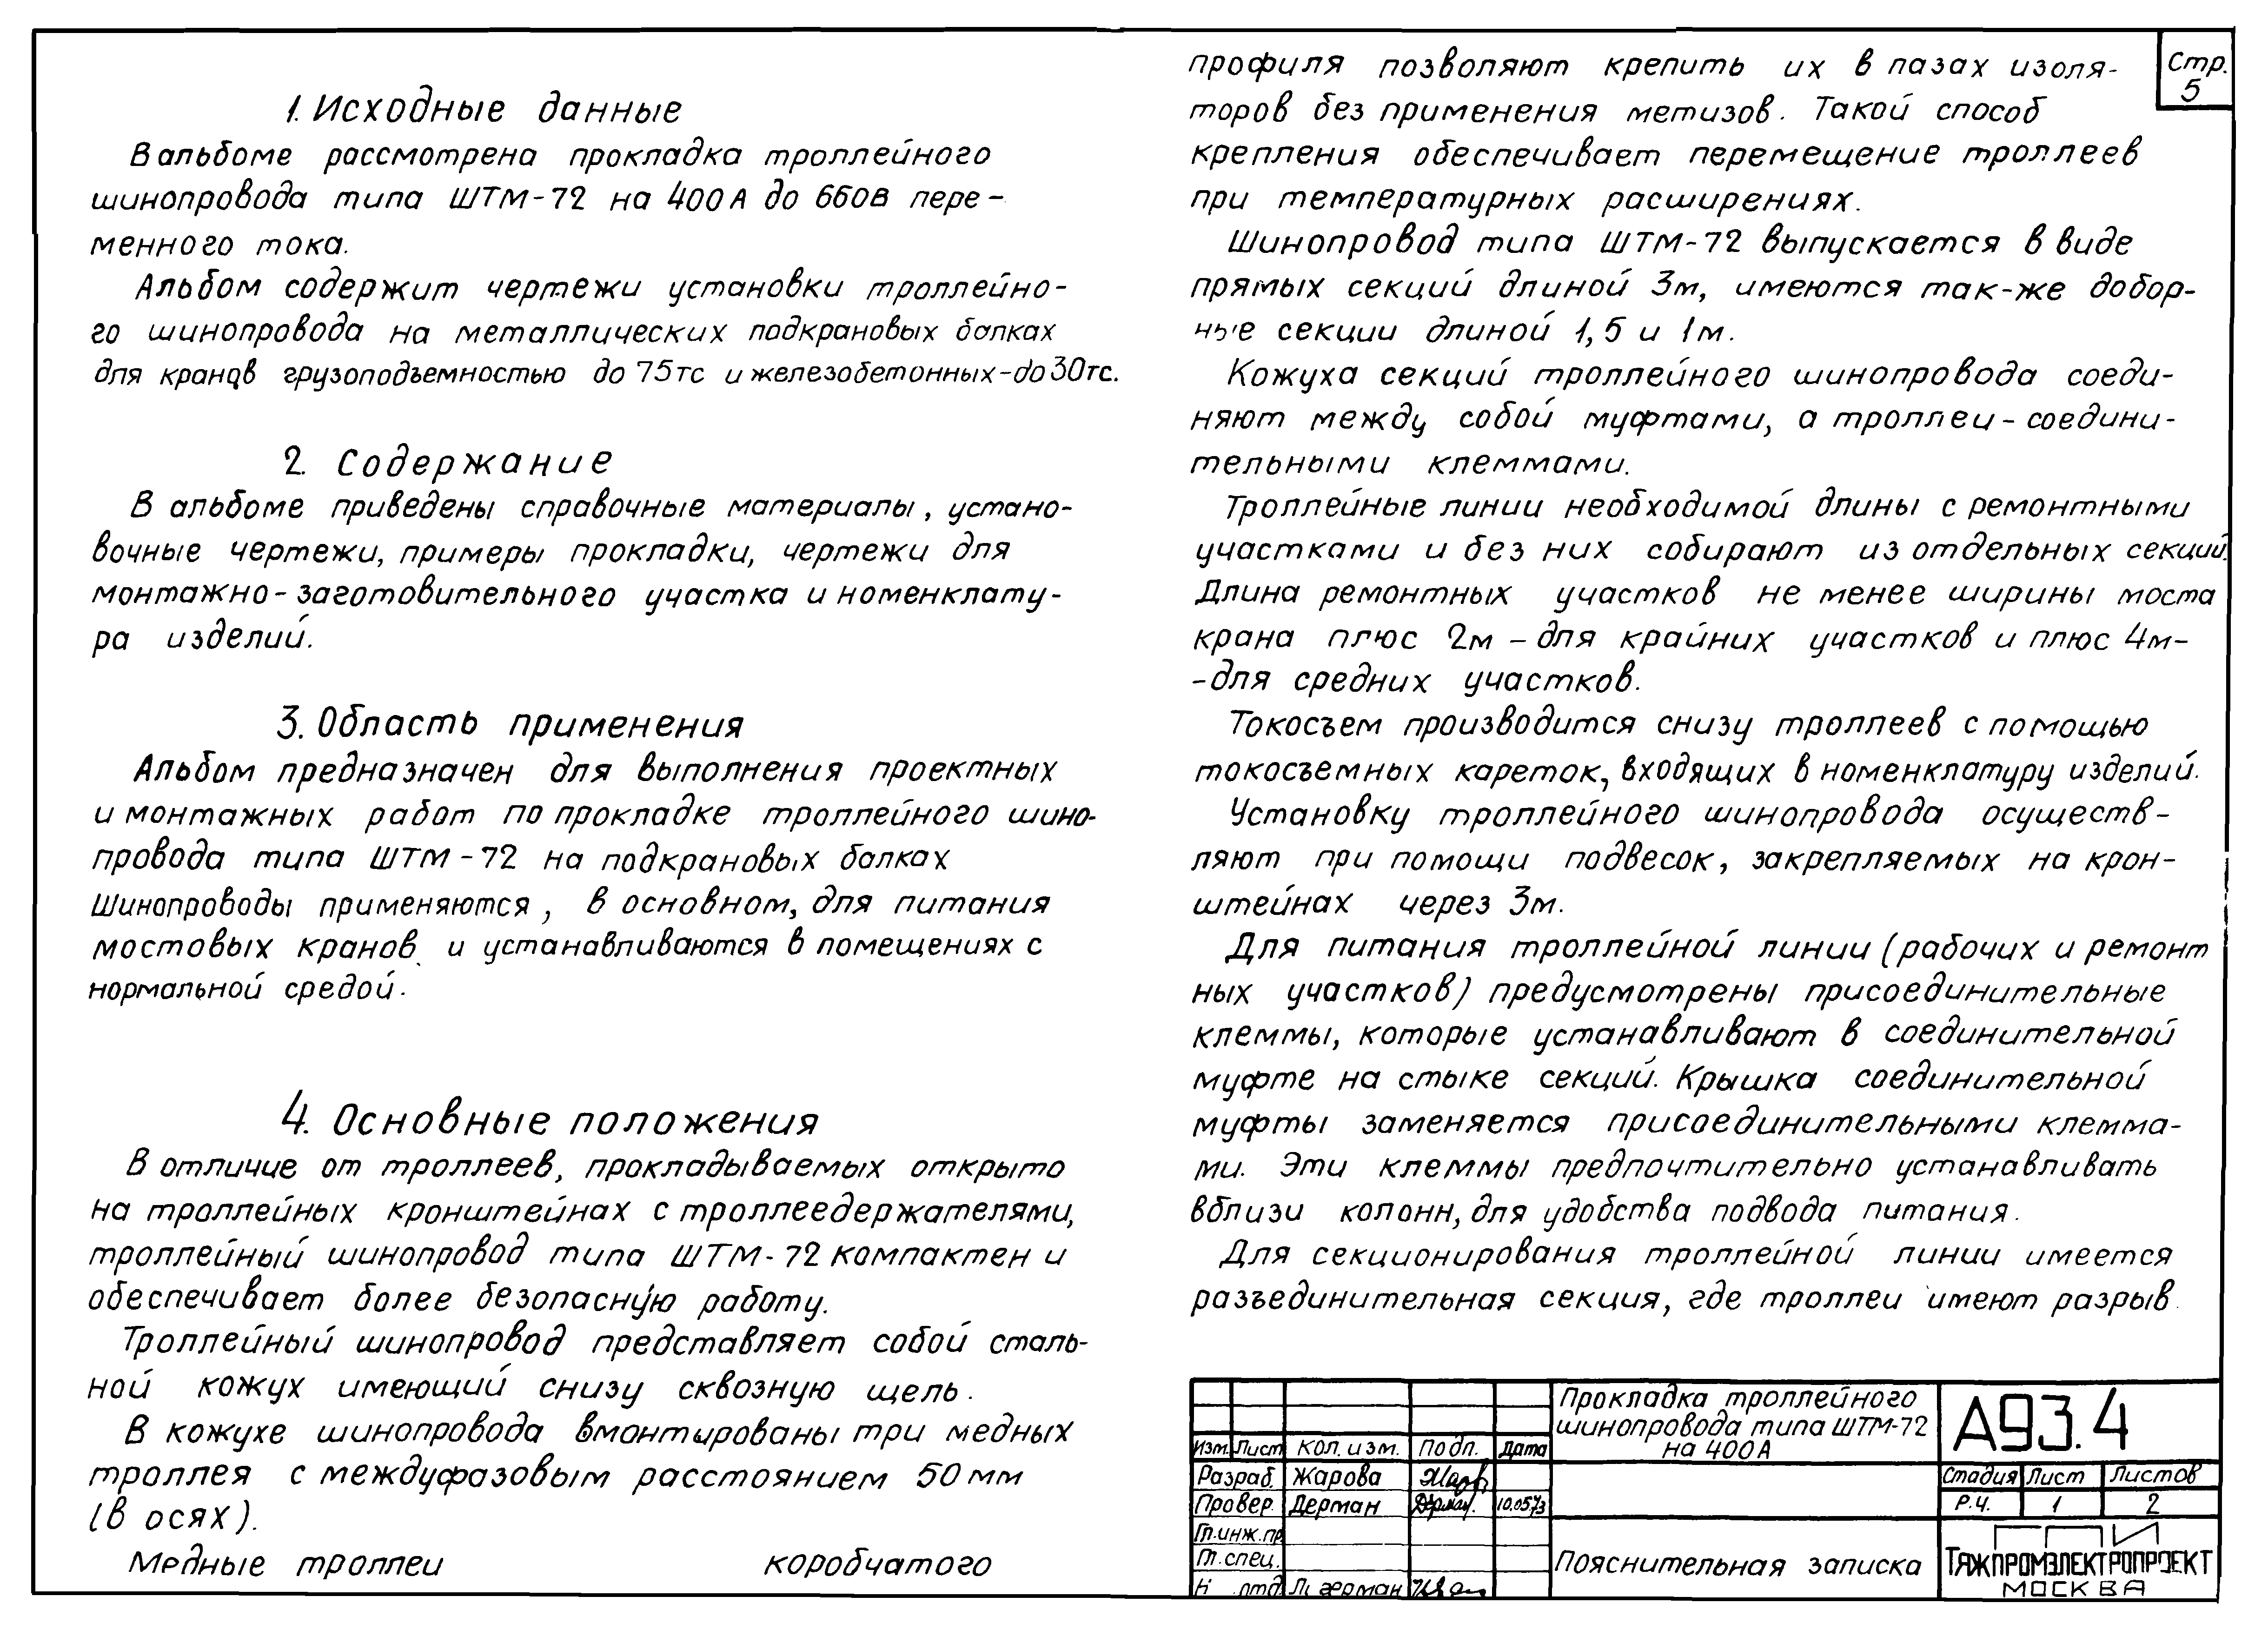 1. Исходные данные
В альбоме рассмотрена прокладка троллейного
шинопровода типа ШТМ-72 на 400А до 660В пере-
менного тока.
Альбом содержит чертежи установки троллейно-
го шинопровода на металлических подкрановых балках
для кранов грузоподъемностью до 75тс и железобетонных-до 30тс.
2. Содержание
В альбоме приведены справочные материалы, устано-
вочные чертежи, примеры прокладки, чертежи для
монтажно-заготовительного участка и номенклату-
ра изделий.
3. Область применения
Альбом предназначен для выполнения проектных
и монтажных работ по прокладке троллейного шино-
провода типа ШТМ-72 на подкрановых балках
Шинопроводы применяются, в основном, для питания
мостовых кранов и устанавливаются в помещениях с
нормальной средой.
4. Основные положения
В отличие от троллеев, прокладываемых открыто
на троллейных кронштейнах с троллеедержателями,
троллейный шинопровод типа ШТМ-72 компактен и
обеспечивает более безопасную работу.
Троллейный шинопровод представляет собой сталь-
ной кожух имеющий снизу сквозную щель.
В кожухе шинопровода вмонтированы три медных
троллея с междуфазовым расстоянием 50 мм
(в осях).
Медные троллеи коробчатого
Стр.
5
профиля позволяют крепить их в пазах изоля-
торов без применения метизов. Такой способ
крепления обеспечивает перемещение троллеев
при температурных расширениях.
Шинопровод типа ШТМ-72 выпускается в виде
прямых секций длиной 3м, имеются так-же добор-
ные секции длиной 1,5 и 1м.
Кожуха секций троллейного шинопровода соеди-
няют между собой муфтами, а троллеи-соедини-
тельными клеммами.
Троллейные линии необходимой длины с ремонтными
участками и без них собирают из отдельных секций.
Длина ремонтных участков не менее ширины моста
крана плюс 2м - для крайних участков и плюс 4м-
-для средних участков.
Токосъем производится снизу троллеев с помощью
токосъемных кареток, входящих в номенклатуру изделий.
Установку троллейного шинопровода осуществ-
ляют при помощи подвесок, закрепляемых на крон-
штейнах через 3м.
Для питания троллейной линии (рабочих и ремонт
ных участков) предусмотрены присоединительные
клеммы, которые устанавливают в соединительной
муфте на стыке секций. Крышка соединительной
муфты заменяется присоединительными клемма-
ми. Эти клеммы предпочтительно устанавливать
вблизи колонн, для удобства подвода питания.
Для секционирования троллейной линии имеется
разъединительная секция, где троллеи имеют разрыв.
Прокладка троллейного
шинопровода типа ШТМ-72
на 400А
А93.4
Изм. Лист Кол. изм. Подп. Дата
Разраб. Жарова
Провер. Дерман 10.05.73
Гл.инж.пр.
Гл.спец.
отд.
Стадия Лист Листов
Р.Ч. 1 2
Пояснительная записка
ТЯЖПРОМЭЛЕКТРОПРОЕКТ
МОСКВА